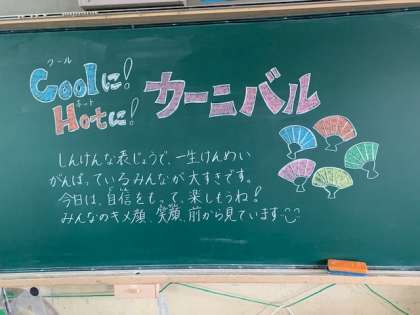 クール
Coolに!
ホット
Hotに!
カーニバル
しんけんな表じょうで、一生けんめい
がんばっているみんなが大すきです。
今日は、自信をもって、楽しもうね!
みんなのキメ顔、笑顔、前から見ています